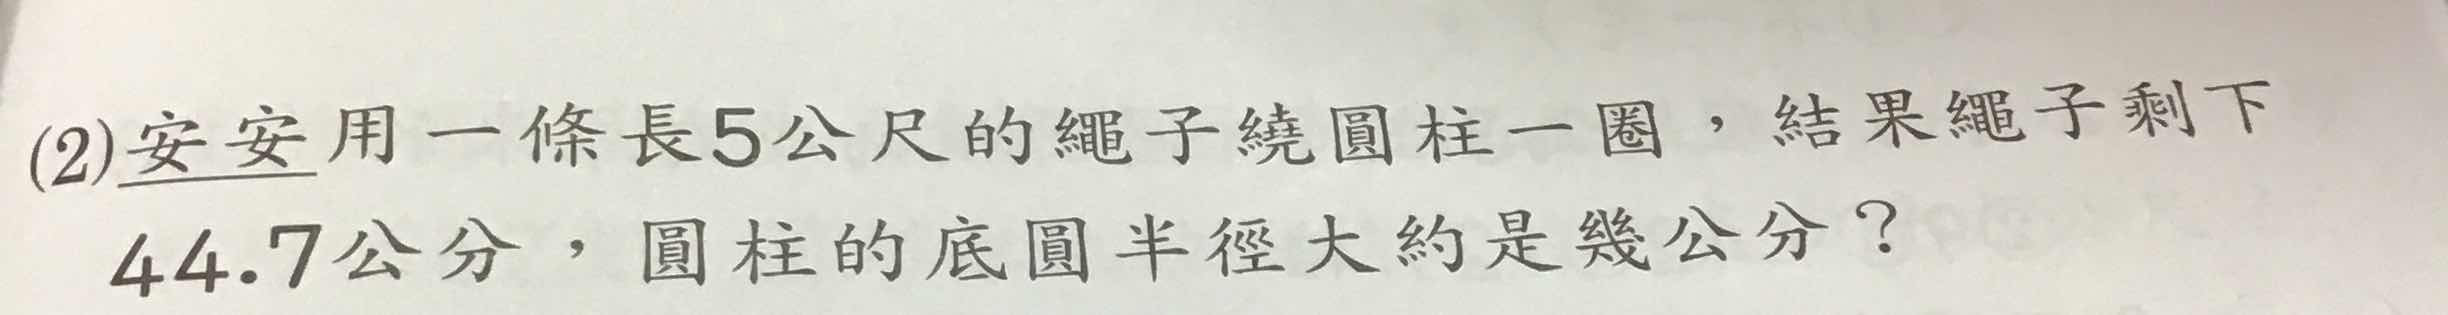 (2)安安用一條長5公尺的繩子繞圓柱一圈，結果繩子剩下
44.7公分，圓柱的底圓半徑大約是幾公分？